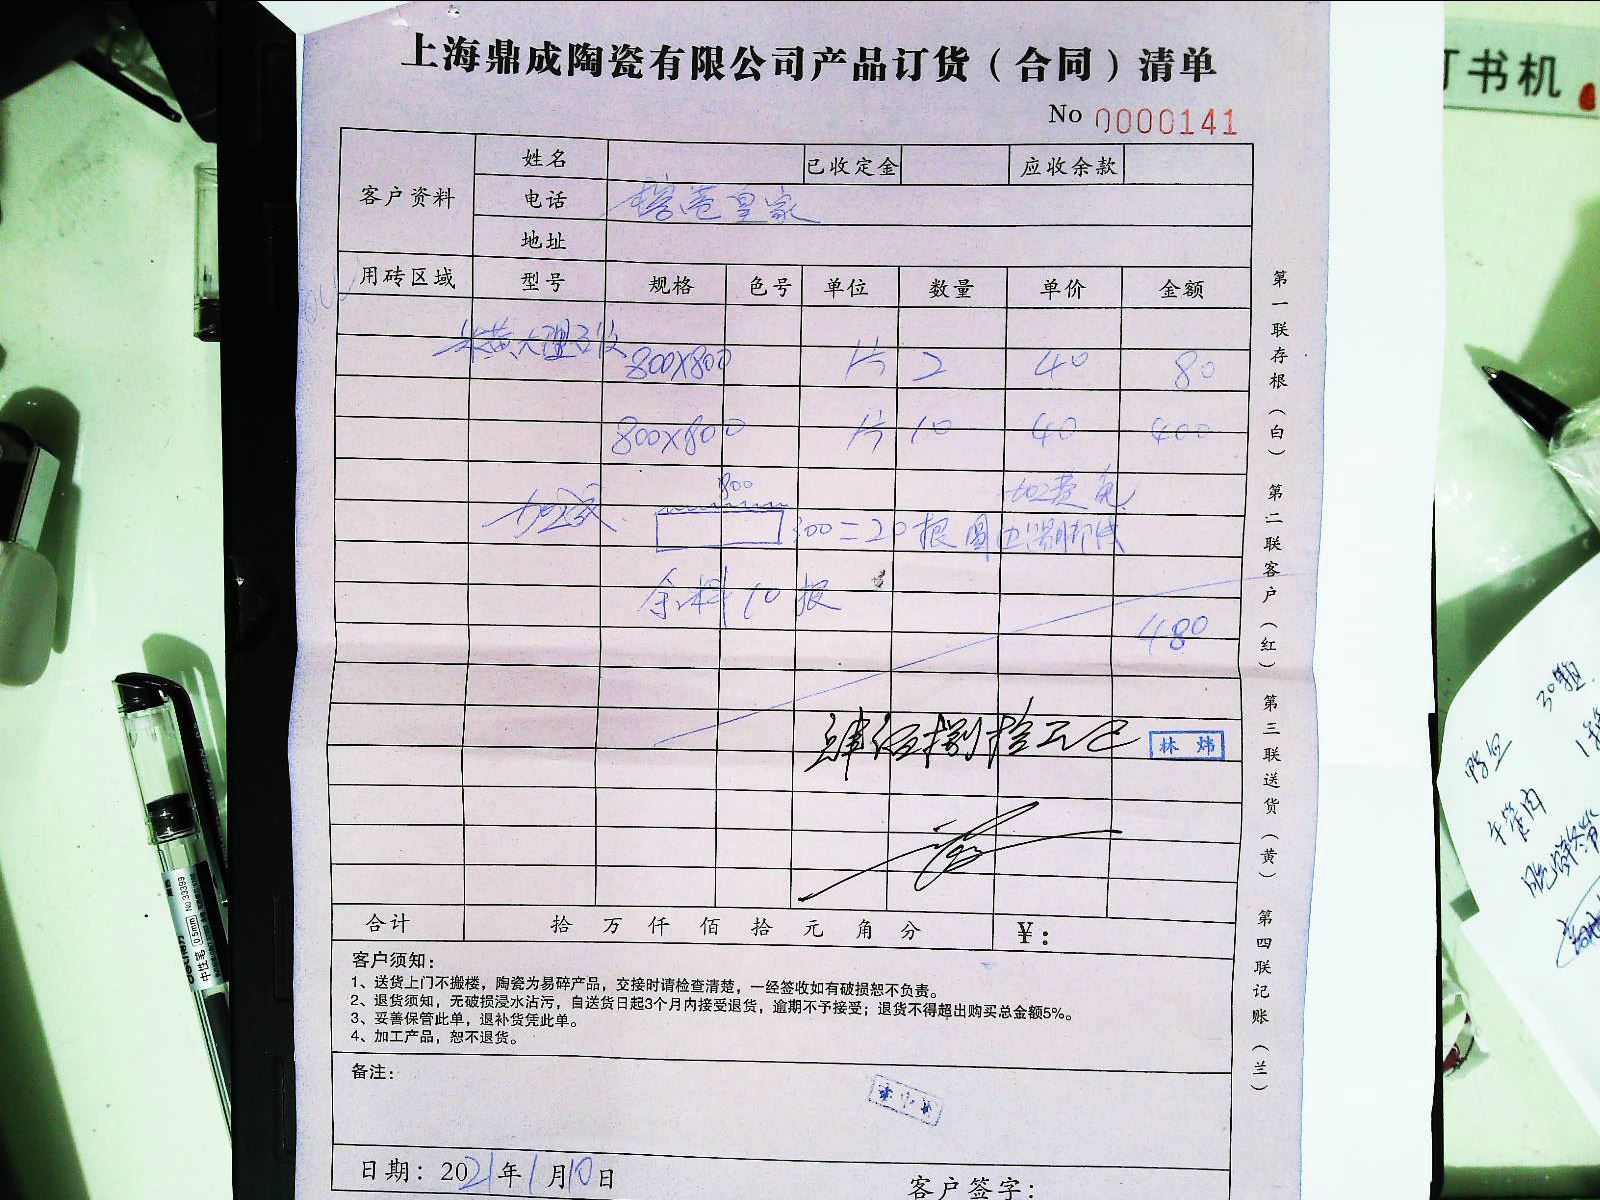 上海鼎成陶瓷有限公司产品订货（合同）清单
No 0000141
客户资料 姓名 已收定金 应收余款
电话 皇家
地址
用砖区域 型号 规格 色号 单位 数量 单价 金额
米黄大理石 800×800 片 2 40 80
800×800 片 10 40 400
800 加费免
加工成 300=20根
余料10根
480
肆佰捌拾元
林炜
合计 拾 万 仟 佰 拾 元 角 分 ￥:
客户须知:
1、送货上门不搬楼，陶瓷为易碎产品，交接时请检查清楚，一经签收如有破损恕不负责。
2、退货须知，无破损浸水沾污，自送货日起3个月内接受退货，逾期不予接受；退货不得超出购买总金额5%。
3、妥善保管此单，退补货凭此单。
4、加工产品，恕不退货。
备注:
日期: 2021年1月10日
客户签字:
第一联存根（白） 第二联客户（红） 第三联送货（黄） 第四联记账（兰）
订书机
30颗
牛筐肉
中性笔 0.5mm
No 33369